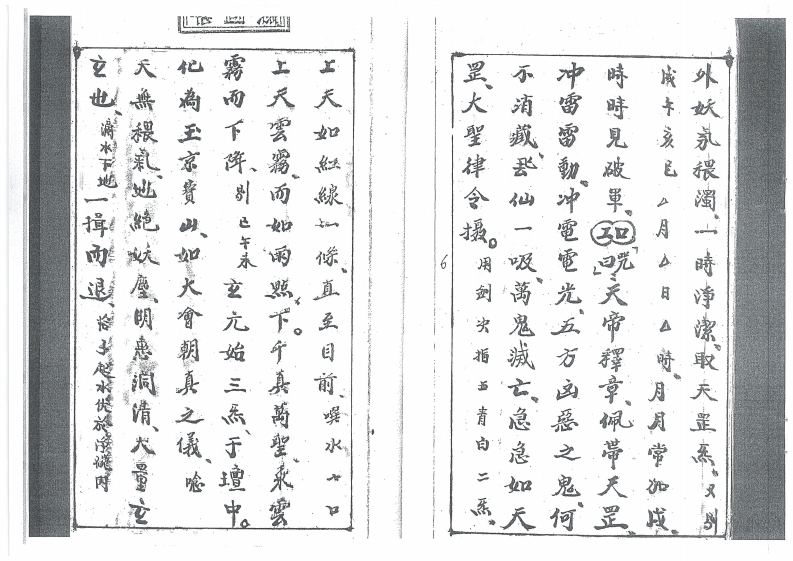 外妖氛穢濁、一時淨潔、取天罡炁、又別
戌午亥巳△月△日△時、月月常加戌、
時時見破軍、咒曰、天帝釋章、佩帶天罡、
冲雷雷動、冲電電光、五方凶惡之鬼、何
不消藏、飛仙一吸、萬鬼滅亡、急急如天
罡大聖律令攝。用劍次指五青白二炁、
6
上天如紅線一條、直至目前、噀水七口
上天雲霧、而如雨照、下千真萬聖、乘雲
霧而下降、別巳午未玄元始三炁、于壇中。
化為玉京寶山、如大會朝真之儀唸
天無穢氣、地絕妖塵、明惠洞清、大量玄
玄也、滴水下地一揖而退、水